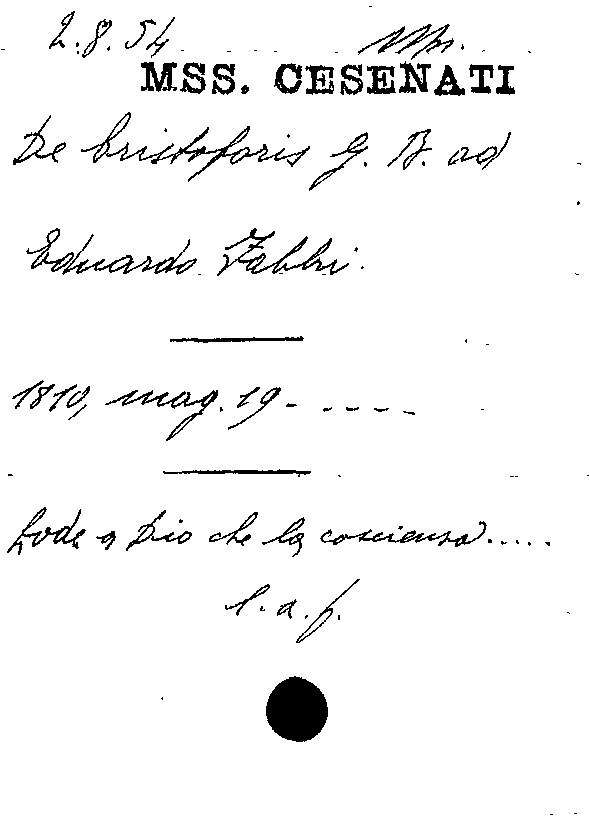 2.8.54
MSS. CESENATI
De Cristoforis G. B. ad
Eduardo Fabbri.
1810, mag. 19 - - - - -
Lode a Dio che la coscienza.....
l. a. f.